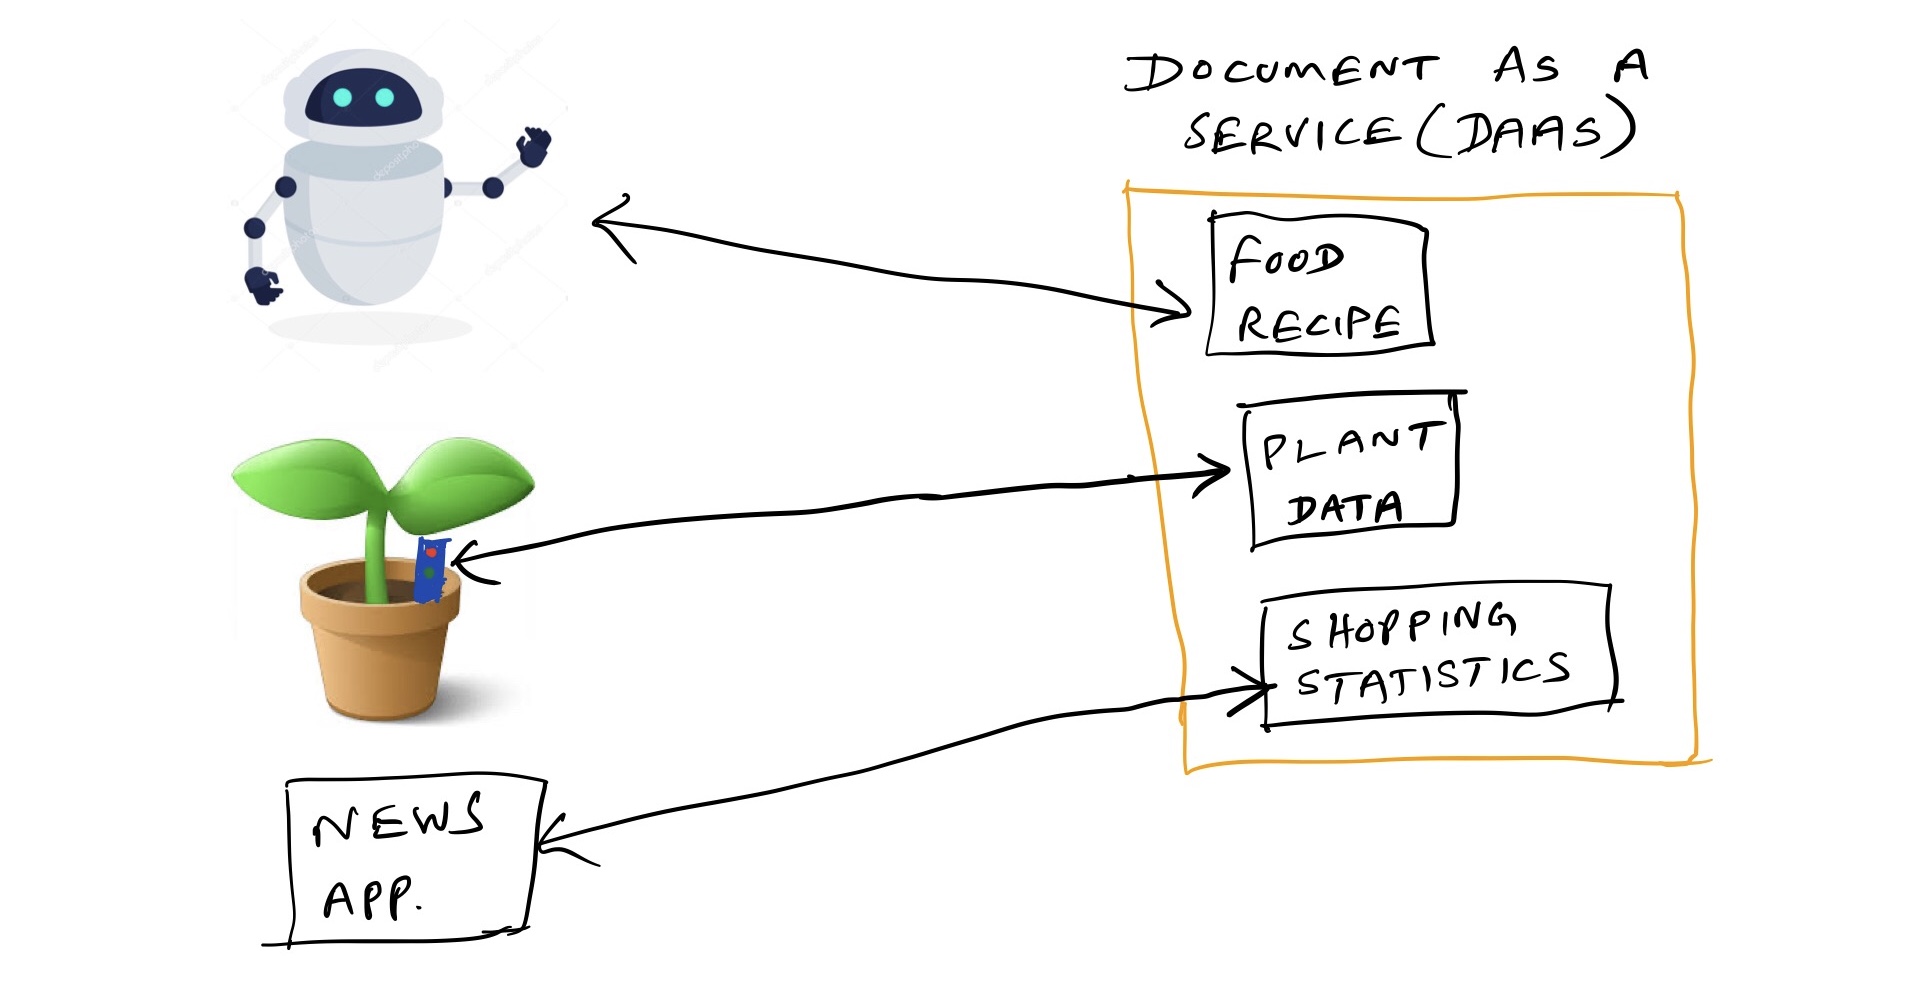 DOCUMENT AS A
SERVICE (DAAS)
FOOD
RECIPE
PLANT
DATA
SHOPPING
STATISTICS
NEWS
APP.
depositphotos